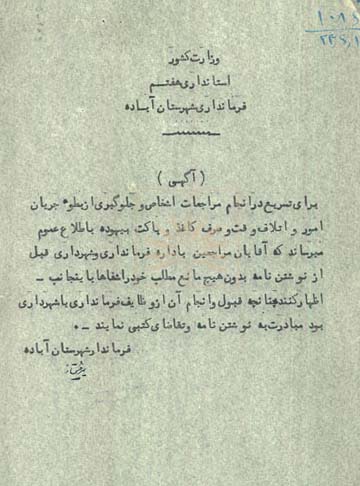 ۱۰۱۵
وزارت کشور
استانداری هفتم
فرمانداری شهرستان آباده
(آگهی)
برای تسریع در انجام مراجعات اشخاص و جلوگیری از بطوء جریان
امور و اتلاف وقت و صرف کاغذ و پاکت بیهوده باطلاع عموم
میرساند که آقایان مراجعین باداره فرمانداری و شهرداری قبل
از نوشتن نامه بدون هیچ مانع مطلب خود را شفاها با ینجانب -
اظهار کنند چنانچه قبول و انجام آن از وظایف فرمانداری یا شهرداری
بود مبادرت به نوشتن نامه و تقاضای کتبی نمایند -۰
فرماندار شهرستان آباده